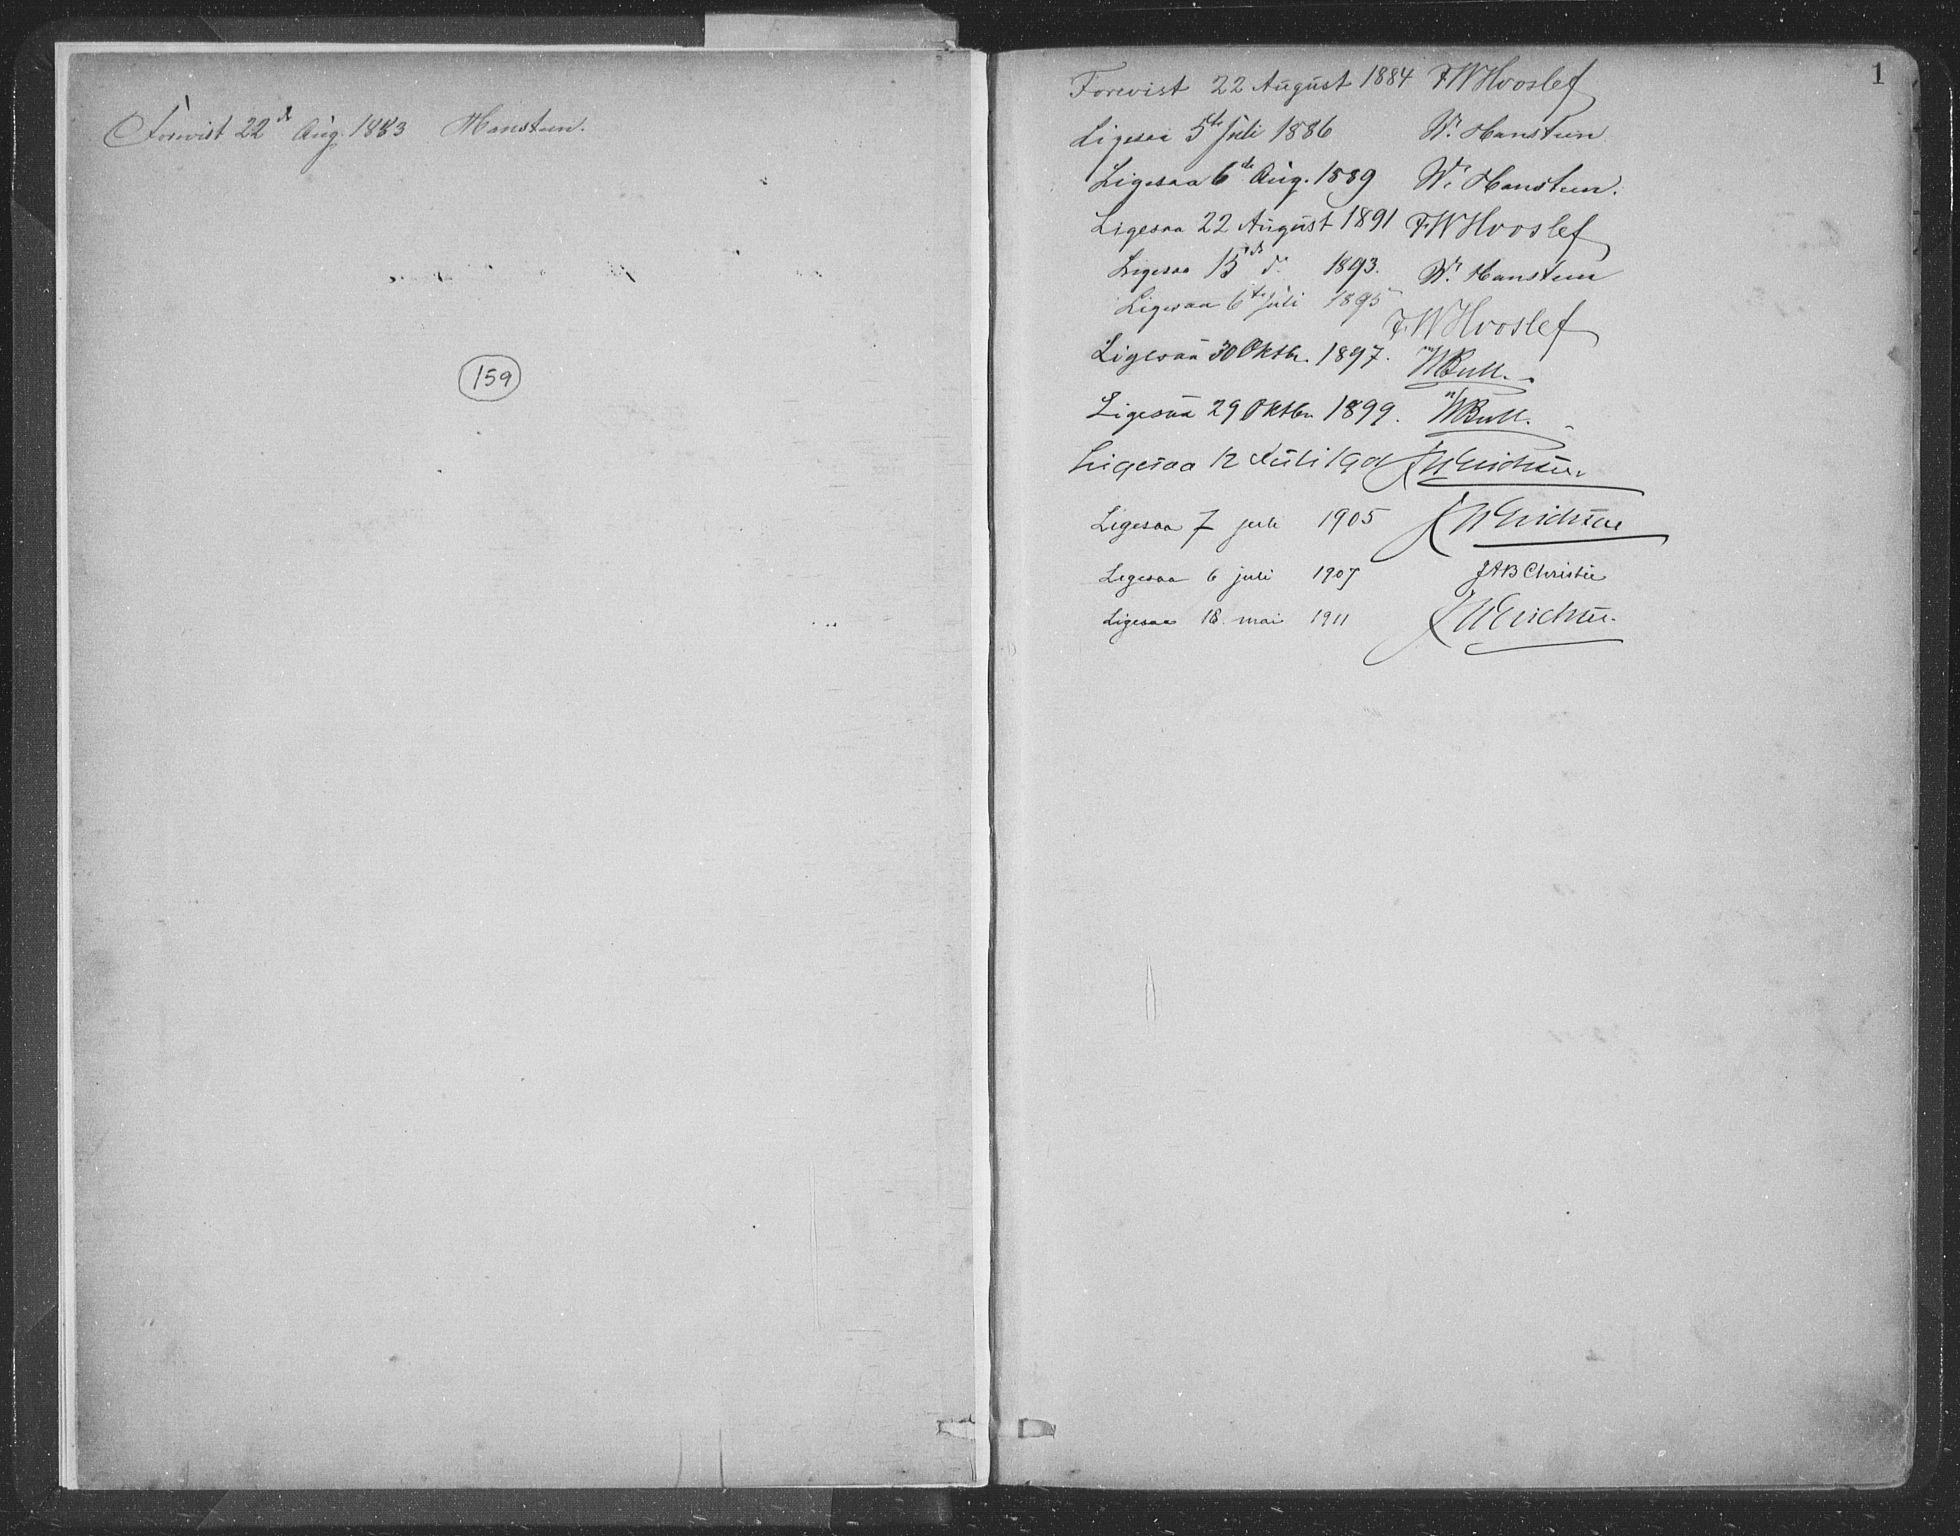 Forevist 22de Aug. 1883 Hansteen.
159
1
Forevist 22 August 1884 FWHvoslef
Ligesaa 5te Juli 1886 W. Hansteen
Ligesaa 6te Aug. 1889 W. Hansteen.
Ligesaa 22 August 1891 FWHvoslef
Ligesaa 15de d. 1893. W. Hansteen
Ligesaa 6te Juli 1895 F.WHvoslef
Ligesaa 30 Oktbr. 1897. Bull.
Ligesaa 29 Oktbr 1899. Bull.
Ligesaa 12 Juli 1901
Ligesaa 7 juli 1905
Ligesaa 6 juli 1907 JAB Christie
Ligesaa 18. mai 1911